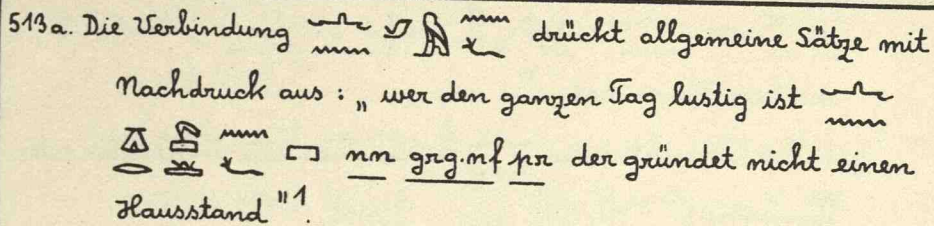 513a. Die Verbindung 𓂜𓈖𓄔𓅓𓈖𓆑 drückt allgemeine Sätze mit
Nachdruck aus: „wer den ganzen Tag lustig ist 𓂜𓈖
𓎼𓂋 𓈖𓆑 𓉐 nn grg.nf pr der gründet nicht einen
Hausstand"1.